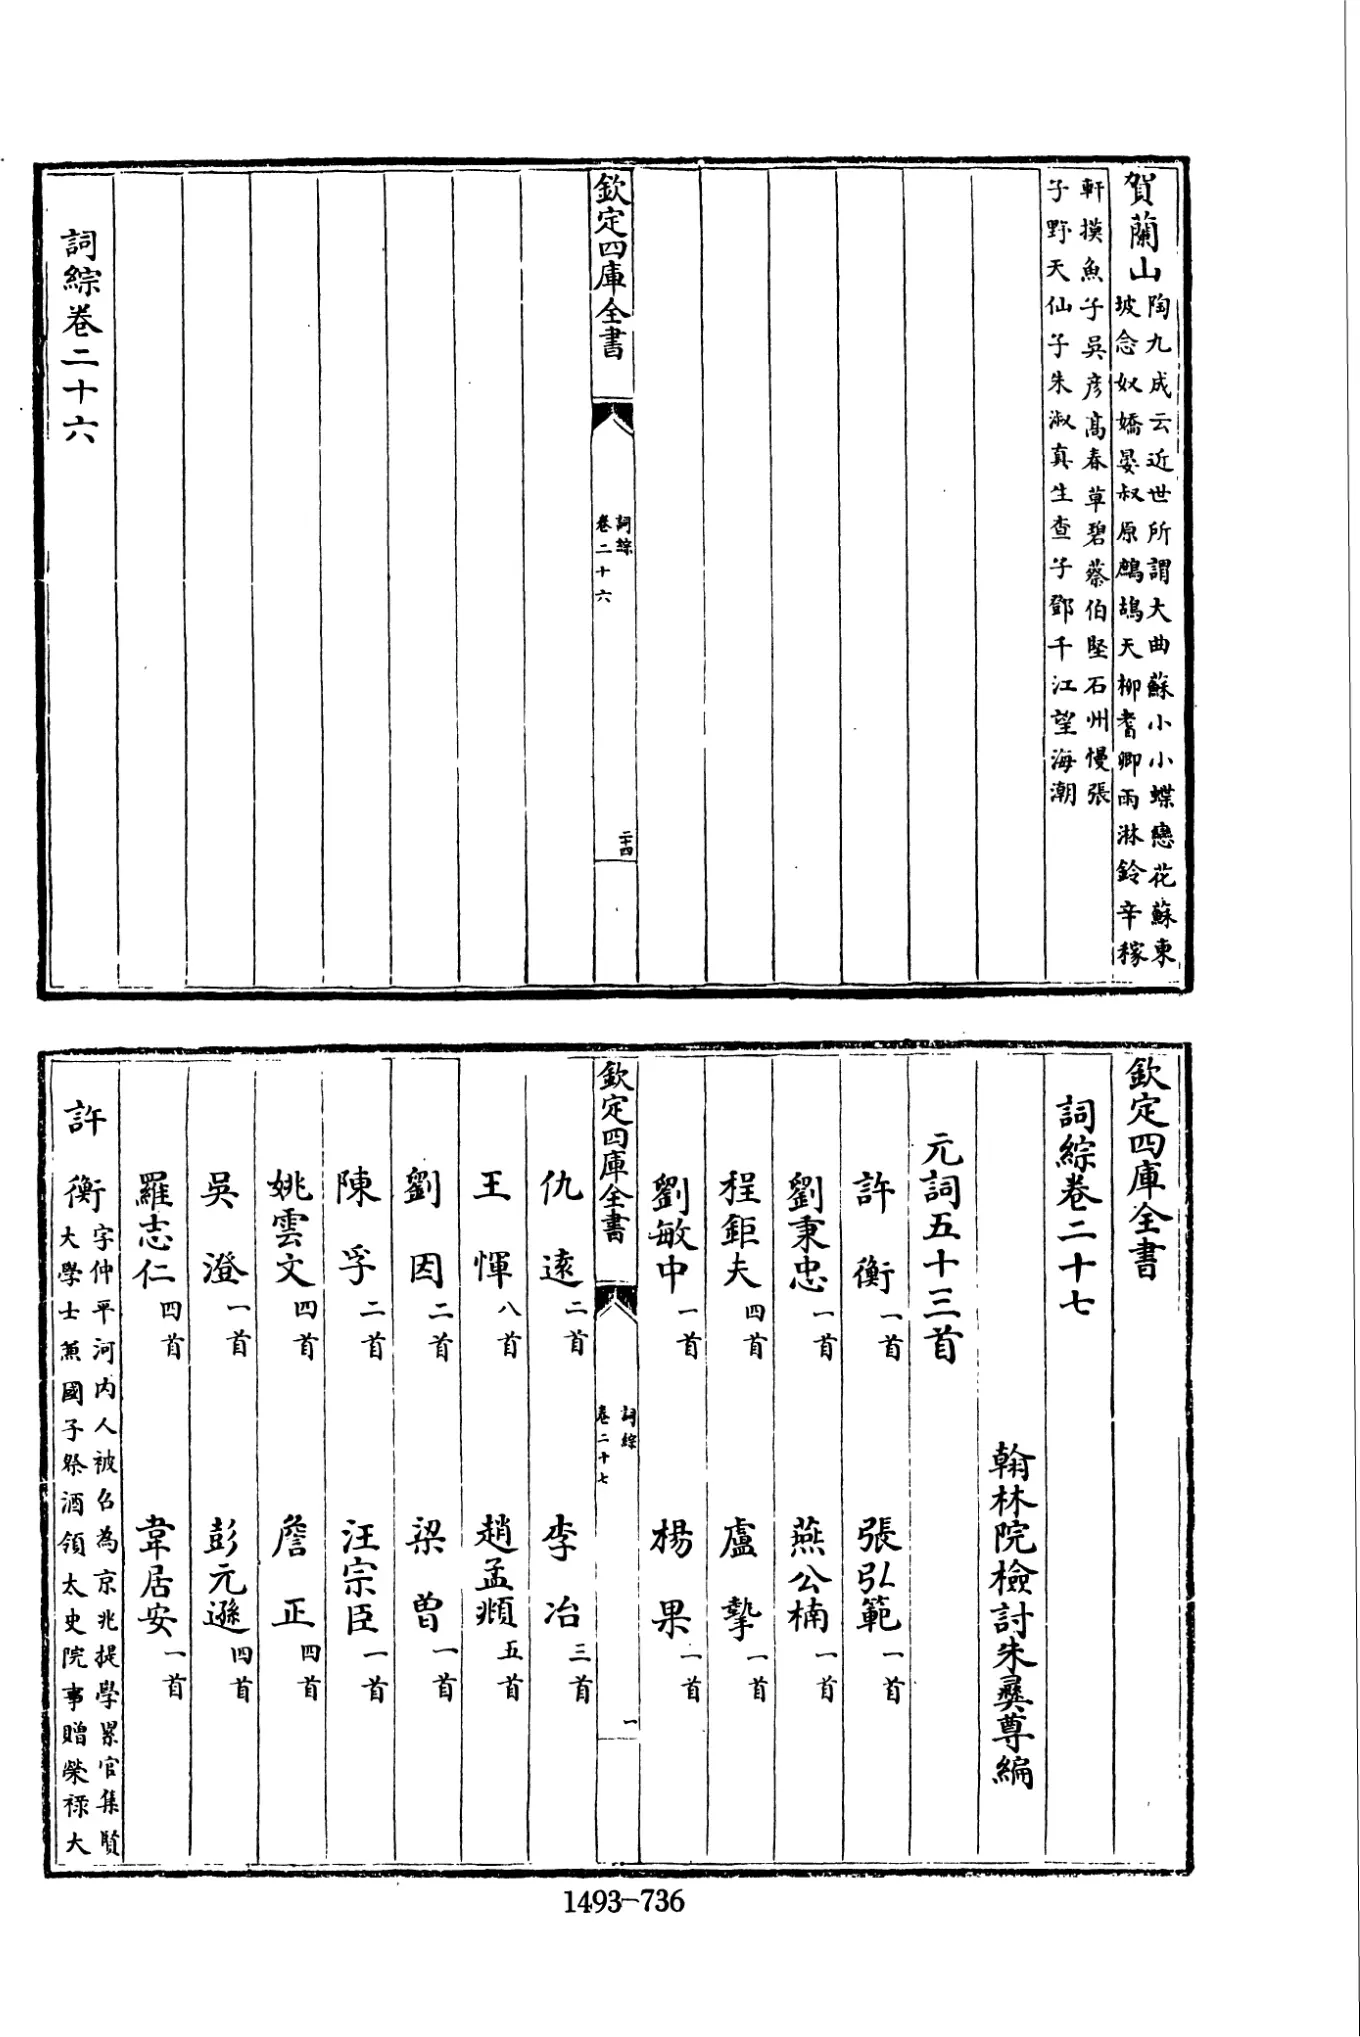 賀蘭山
陶九成云近世所謂大曲蘇小小蝶戀花蘇東
坡念奴嬌晏叔原鷓鴣天柳耆卿雨淋鈴辛稼
軒摸魚子吳彦髙春草碧蔡伯堅石州慢張
子野天仙子朱淑真生查子鄧千江望海潮
欽定四庫全書
詞綜
卷二十六
二十四
詞綜卷二十六
欽定四庫全書
詞綜卷二十七
翰林院檢討朱彝尊編
元詞五十三首
許衡一首 張弘範一首
劉秉忠一首 燕公楠一首
程鉅夫四首 盧摯一首
劉敏中一首 楊果一首
欽定四庫全書
詞綜
卷二十七
一
仇逺二首 李冶三首
王惲八首 趙孟頫五首
劉因二首 梁曾一首
陳孚二首 汪宗臣一首
姚雲文四首 詹正四首
吳澄一首 彭元遜四首
羅志仁四首 韋居安一首
許衡
字仲平河内人被召為京兆提學累官集賢
大學士兼國子祭酒領太史院事贈榮祿大
1493-736